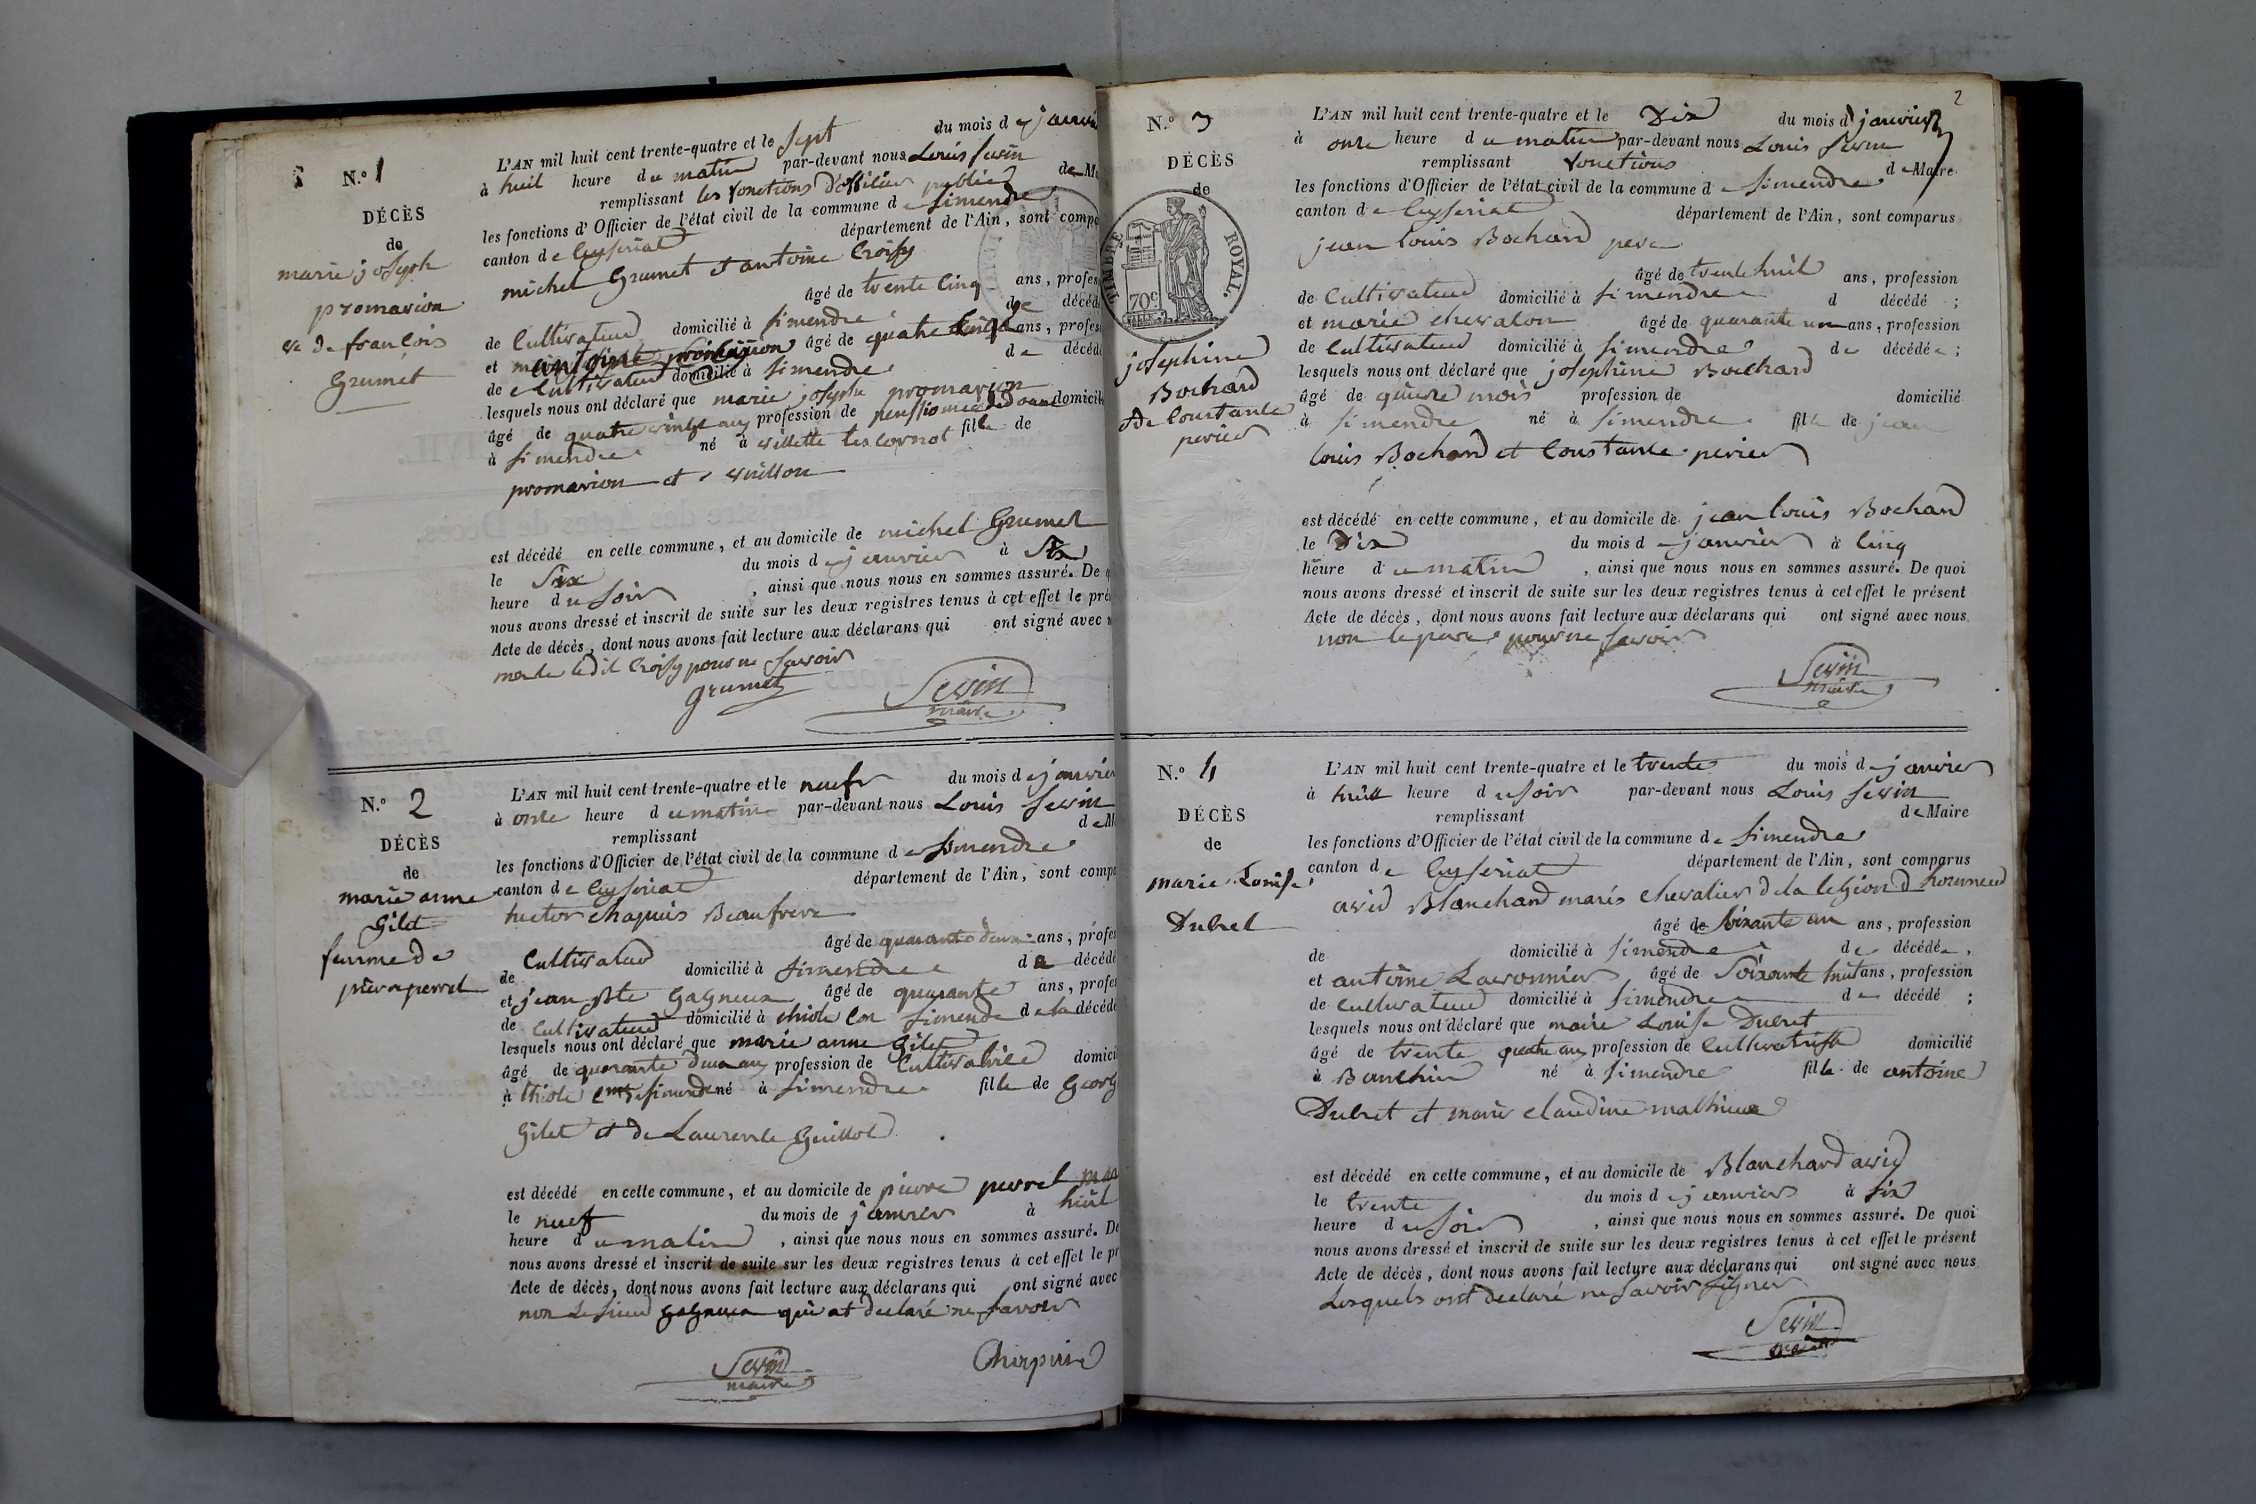 N.° 1
DÉCÈS
de
marie joseph
promavion
ve de françois
Grumet
L'AN mil huit cent trente-quatre et le sept du mois de janvi
à huit heure du matin par-devant nous Louis Sevin
remplissant les fonctions d'officier public de Ma
les fonctions d'Officier de l'état civil de la commune de Simendre
canton de Ceyseriat département de l'Ain, sont compa
michel Grumet et antoine Croisy
âgé de trente cinq ans, profes
de Cultivateur domicilié à Simendre de décédé
et antoine âgé de quatre ans, profess
de Cultivateur domicilié à Simendre de décédé
lesquels nous ont déclaré que marie joseph promavion
âgé de quatre vingt ans profession de domicilié
à Simendre né à villette les cornot fille de
promavion et vuillon
est décédé en cette commune, et au domicile de michel Grumet
le Six du mois de janvier à Six
heure du Soir, ainsi que nous nous en sommes assuré. De q
nous avons dressé et inscrit de suite sur les deux registres tenus à cet effet le pré
Acte de décès, dont nous avons fait lecture aux déclarans qui ont signé avec n
ledit Croisy pour ne Savoir
grumet Sevin
maire
N.° 2
DÉCÈS
de
marie anne
Gilet
femme de
pierre perret
L'AN mil huit cent trente-quatre et le neuf du mois de janvier
à onze heure du matin par-devant nous Louis Sevin
remplissant de Ma
les fonctions d'Officier de l'état civil de la commune de Simendre
canton de Ceyseriat département de l'Ain, sont compa
hector chapuis Beaufrere
âgé de quarante deux ans, profes
de Cultivateur domicilié à Simendre de décédé
et jean Bte Gagneux âgé de quarante ans, profes
de Cultivateur domicilié à thiole Con Simende de la décédé
lesquels nous ont déclaré que marie anne Gilet
âgé de quarante deux ans profession de Cultivatrice domicil
à thiole Simende né à Simendre fille de Georg
Gilet et de Laurence Guillot
est décédé en cette commune, et au domicile de pierre perret
le neuf du mois de janvier à huit
heure du matin, ainsi que nous nous en sommes assuré. De
nous avons dressé et inscrit de suite sur les deux registres tenus à cet effet le pr
Acte de décès, dont nous avons fait lecture aux déclarans qui ont signé avec
non Le Sieur gagneux qui at déclaré ne Savoir
Sevin Chapuis
maire
2
N.° 3
DÉCÈS
de
TIMBRE ROYAL.
70c
josephine
Bochard
De Constance
perier
L'AN mil huit cent trente-quatre et le Dix du mois d janvier
à onze heure du matin par-devant nous Louis Sevin
remplissant fonctions de Maire
les fonctions d'Officier de l'état civil de la commune de Simendre
canton de Ceyseriat département de l'Ain, sont comparus
jean louis Bochard pere
âgé de trente huit ans, profession
de Cultivateur domicilié à Simendre d décédé ;
et marie chevalon âgé de quarante un ans, profession
de Cultivateur domicilié à Simendre de décédée ;
lesquels nous ont déclaré que josephine Bochard
âgé de quinze mois profession de domicilié
à Simendre né à Simendre fille de jean
louis Bochard et Constance perier
est décédé en cette commune, et au domicile de jean louis Bochard
le Dix du mois de janvier à Cinq
heure du matin, ainsi que nous nous en sommes assuré. De quoi
nous avons dressé et inscrit de suite sur les deux registres tenus à cet effet le présent
Acte de décès, dont nous avons fait lecture aux déclarans qui ont signé avec nous
non le pere pour ne Savoir
Sevin
maire
N.° 4
DÉCÈS
de
marie Louise
Dubret
L'AN mil huit cent trente-quatre et le trente du mois de janvier
à huit heure du soir par-devant nous Louis Sevin
remplissant de Maire
les fonctions d'Officier de l'état civil de la commune de Simendre
canton de Ceyseriat département de l'Ain, sont comparus
avid Blanchard maris chevalier de la legion d hourneur
âgé de Soixante un ans, profession
de domicilié à Simendre de décédée,
et antoine Lavonnier âgé de Soixante huit ans, profession
de Cultivateur domicilié à Simendre de décédé ;
lesquels nous ont déclaré que marie Louise Dubret
âgé de trente quatre ans profession de Cultivatrise domicilié
à Banchin né à Simendre fille de antoine
Dubret et marie claudine mathieux
est décédé en cette commune, et au domicile de Blanchard avid
le trente du mois de janvier à Six
heure du Soir, ainsi que nous nous en sommes assuré. De quoi
nous avons dressé et inscrit de suite sur les deux registres tenus à cet effet le présent
Acte de décès, dont nous avons fait lecture aux déclarans qui ont signé avec nous
Lesquels ont déclaré ne Savoir Signer
Sevin
maire